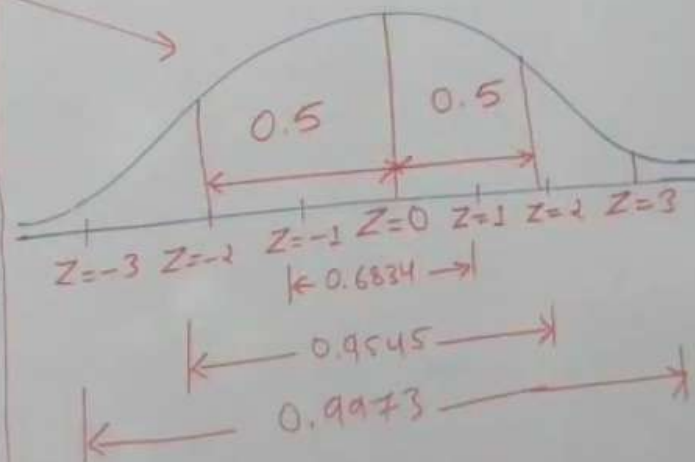 0.5 0.5
Z=-3 Z=-2 Z=-1 Z=0 Z=1 Z=2 Z=3
0.6834
0.9545
0.9973